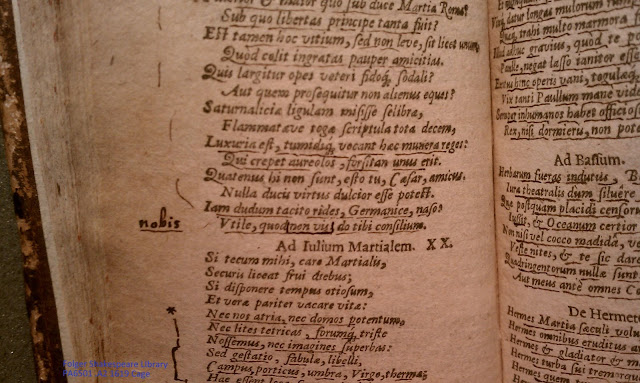 maior quo sub duce Martia Roma?
Sub quo libertas principe tanta fuit?
Eſt tamen hoc vitium, ſed non leve, ſit licet unum,
Quòd colit ingratas pauper amicitias.
Quis largitur opes veteri fidoq, ſodali?
Aut quem proſequitur non alienus eques?
Saturnalicia ligulam miſiſſe ſelibra,
Flammatæve togæ ſcriptula tota decem,
Luxuria eſt, tumidiq, vocant hæc munera reges:
Qui crepet aureolos, forſitan unus erit.
Quatenus hi non ſunt, eſto tu, Cæſar, amicus.
Nulla ducis virtus dulcior eſſe poteſt.
Iam dudum tacito rides, Germanice, naſo?
nobis
Vtile, quod non vis, do tibi conſilium.
Ad Iulium Martialem. XX.
Si tecum mihi, care Martialis,
Securis liceat frui diebus;
Si diſponere tempus otioſum,
Et veræ pariter vacare vitæ:
*
Nec nos atria, nec domos potentum,
Nec lites tetricas, forumq, triſte
Noſſemus, nec imagines ſuperbas:
Sed geſtatio, fabulæ, libelli,
Campus, porticus, umbra, Virgo, thermæ;
Hæc eſſent
datur longas mulorum
trahi multo marmora
gravius, quod te
Paulle, negat laſſo ianitor eſſe
hic operis vani, togulæq
Vix tanti Paullum mane vide
Semper inhumanos habet officioſ
Rex, niſi dormieru, non pot
Ad Baſſum.
Herbarum fueras indutus
Iura theatralis dum ſiluere
Quæ poſtquam placidi cenſor
& Oceanum certior
Non niſi vel cocco madida, ve
nites, & te ſic dare
Quadringentorum nullæ ſunt
Aut meus ante omnes C
De Hermet
Hermes Martia ſæculi volu
Hermes omnibus eruditus a
Hermes & gladiator & m
Hermes turba ſui tremor
Folger Shakespeare Library